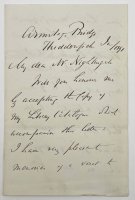 Armitage Bridge
Huddersfield
My dear Mr Nightingale
Will you honour me
by accepting the copy of
my Library Catalogue that
accompanies this letter
I have very pleasant
memories of a visit to